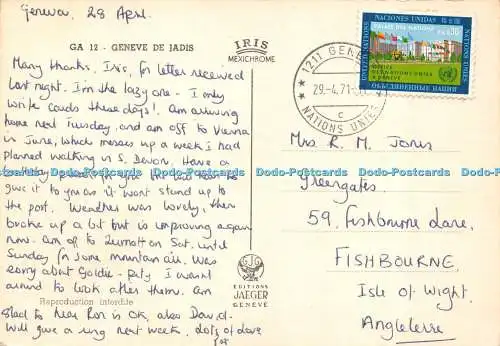 Geneva, 28 April.
GA 12 - GENEVE DE JADIS
IRIS
MEXICHROME
Many thanks, Iris, for letter received
last night. I'm the lazy one - I only
write cards these days! Am arriving
home next Tuesday, and am off to Vienna
in June, which messes up a week I had
planned walking in S. Devon. Have a
for you but will have to
give it to you as it won't stand up to
the post. Weather was lovely, then
broke up a bit but is improving again
now. Am off to Zermatt on Sat. until
Sunday for some mountain air. Was
sorry about Goldie - pity I wasn't
around to look after them. Am
Glad to hear Ron is OK, also David.
Will give a ring next week. Lots of love
Reproduction interdite
EDITIONS
JAEGER
GENÈVE
NACIONES UNIDAS
PALAIS DES NATIONS
UNITED NATIONS
NATIONS UNIES
OFFICE
DES NATIONS UNIES
A GENEVE
ОБЪЕДИНЕННЫЕ НАЦИИ
1211 GENÈVE
29.-4.71
NATIONS UNIES
c
Mrs. R. M. Jones
Greengates
59, Fishbourne Lane,
FISHBOURNE,
Isle of Wight,
Angleterre
Dodo-Postcards Dodo-Postcards Dodo-Postcards Dodo-Postcards